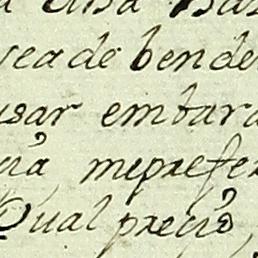 esa
ea de bende
usar embara
cia meprefer
Qual precio,